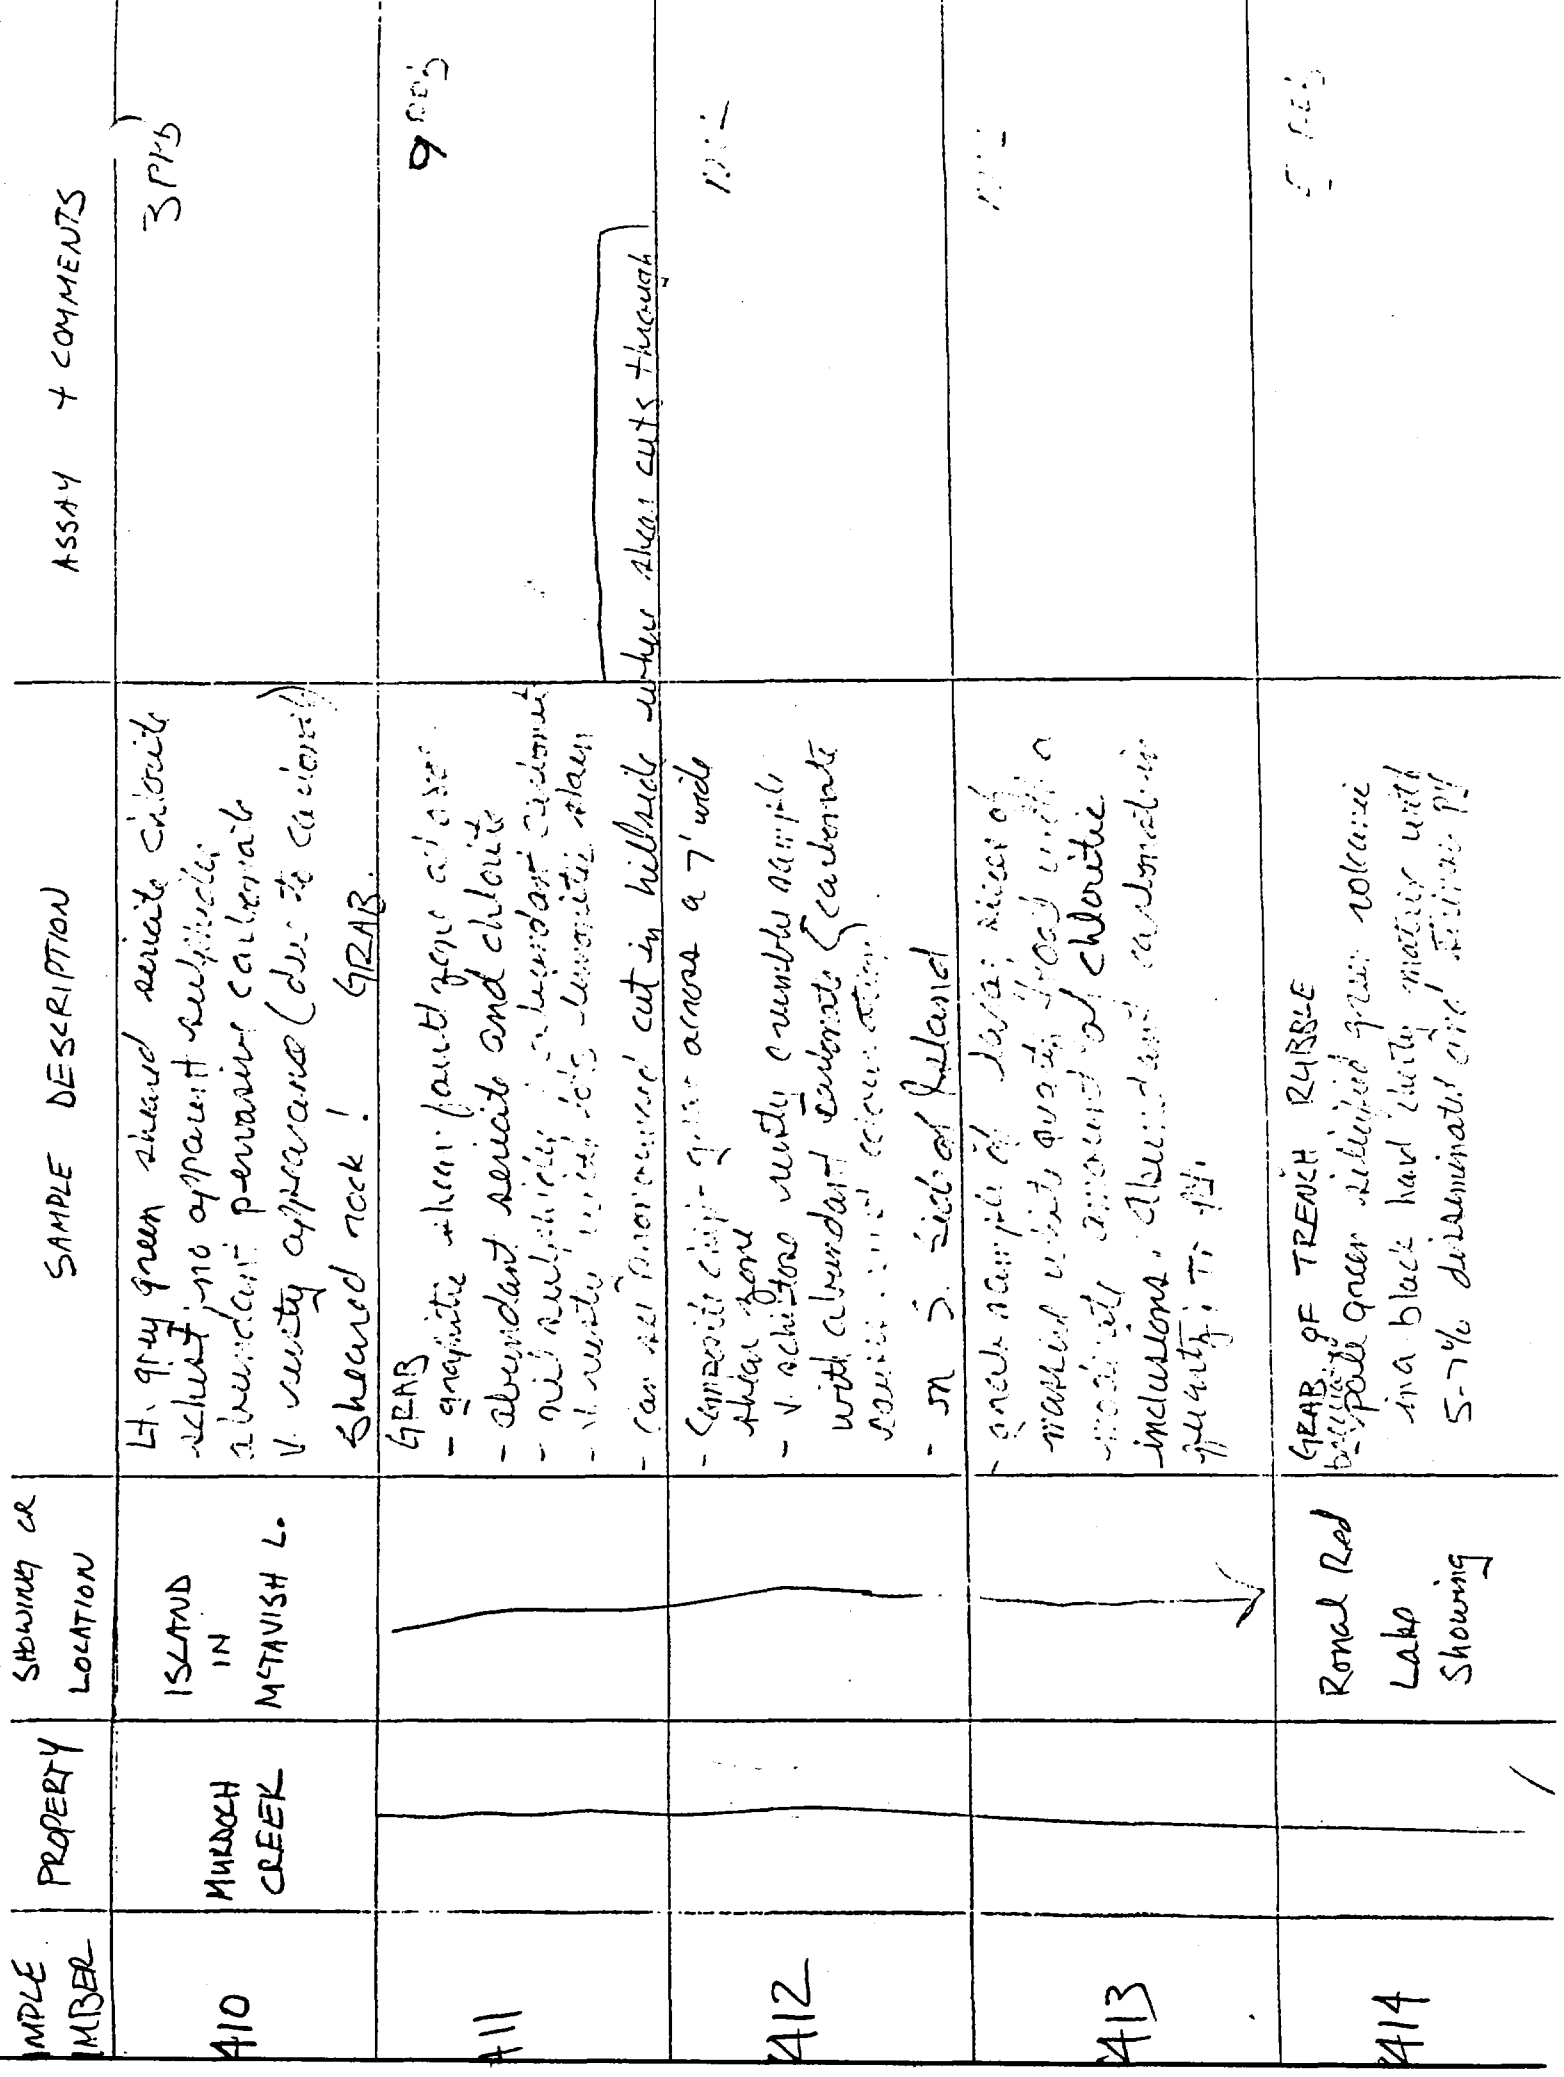 MPLE
MBER
PROPERTY
SHOWING OR
LOCATION
SAMPLE DESCRIPTION
ASSAY + COMMENTS
410
MURDOCH
CREEK
ISLAND
IN
McTAVISH L.
Lt. grey green sheared sericite chlorite
schist, no apparent sulphides
abundant pervasive carbonate
V. rusty appearance (due to carbonate)
Sheared rock! GRAB.
3 PPB
411
GRAB
- graphitic shear/fault zone
- abundant sericite and chlorite
- nil sulphides, abundant carbonate
- V. rusty limonitic stain
- can see cut in hillside where shear cuts through
9 PPB
412
- Composite chip-grab across a 7' wide
shear zone
- V. schistose rusty crumbly sample
with abundant carbonate {carbonate
- on S. side of Island
NIL
413
- grab sample of
massive white quartz
moderate amount of chloritic
inclusions. Abundant carbonate in
NIL
414
Ronal Red
Lake
Showing
GRAB OF TRENCH RUBBLE
- pale green silicified volcanic
in a black hard cherty matrix with
5-7% disseminated PY
PPB